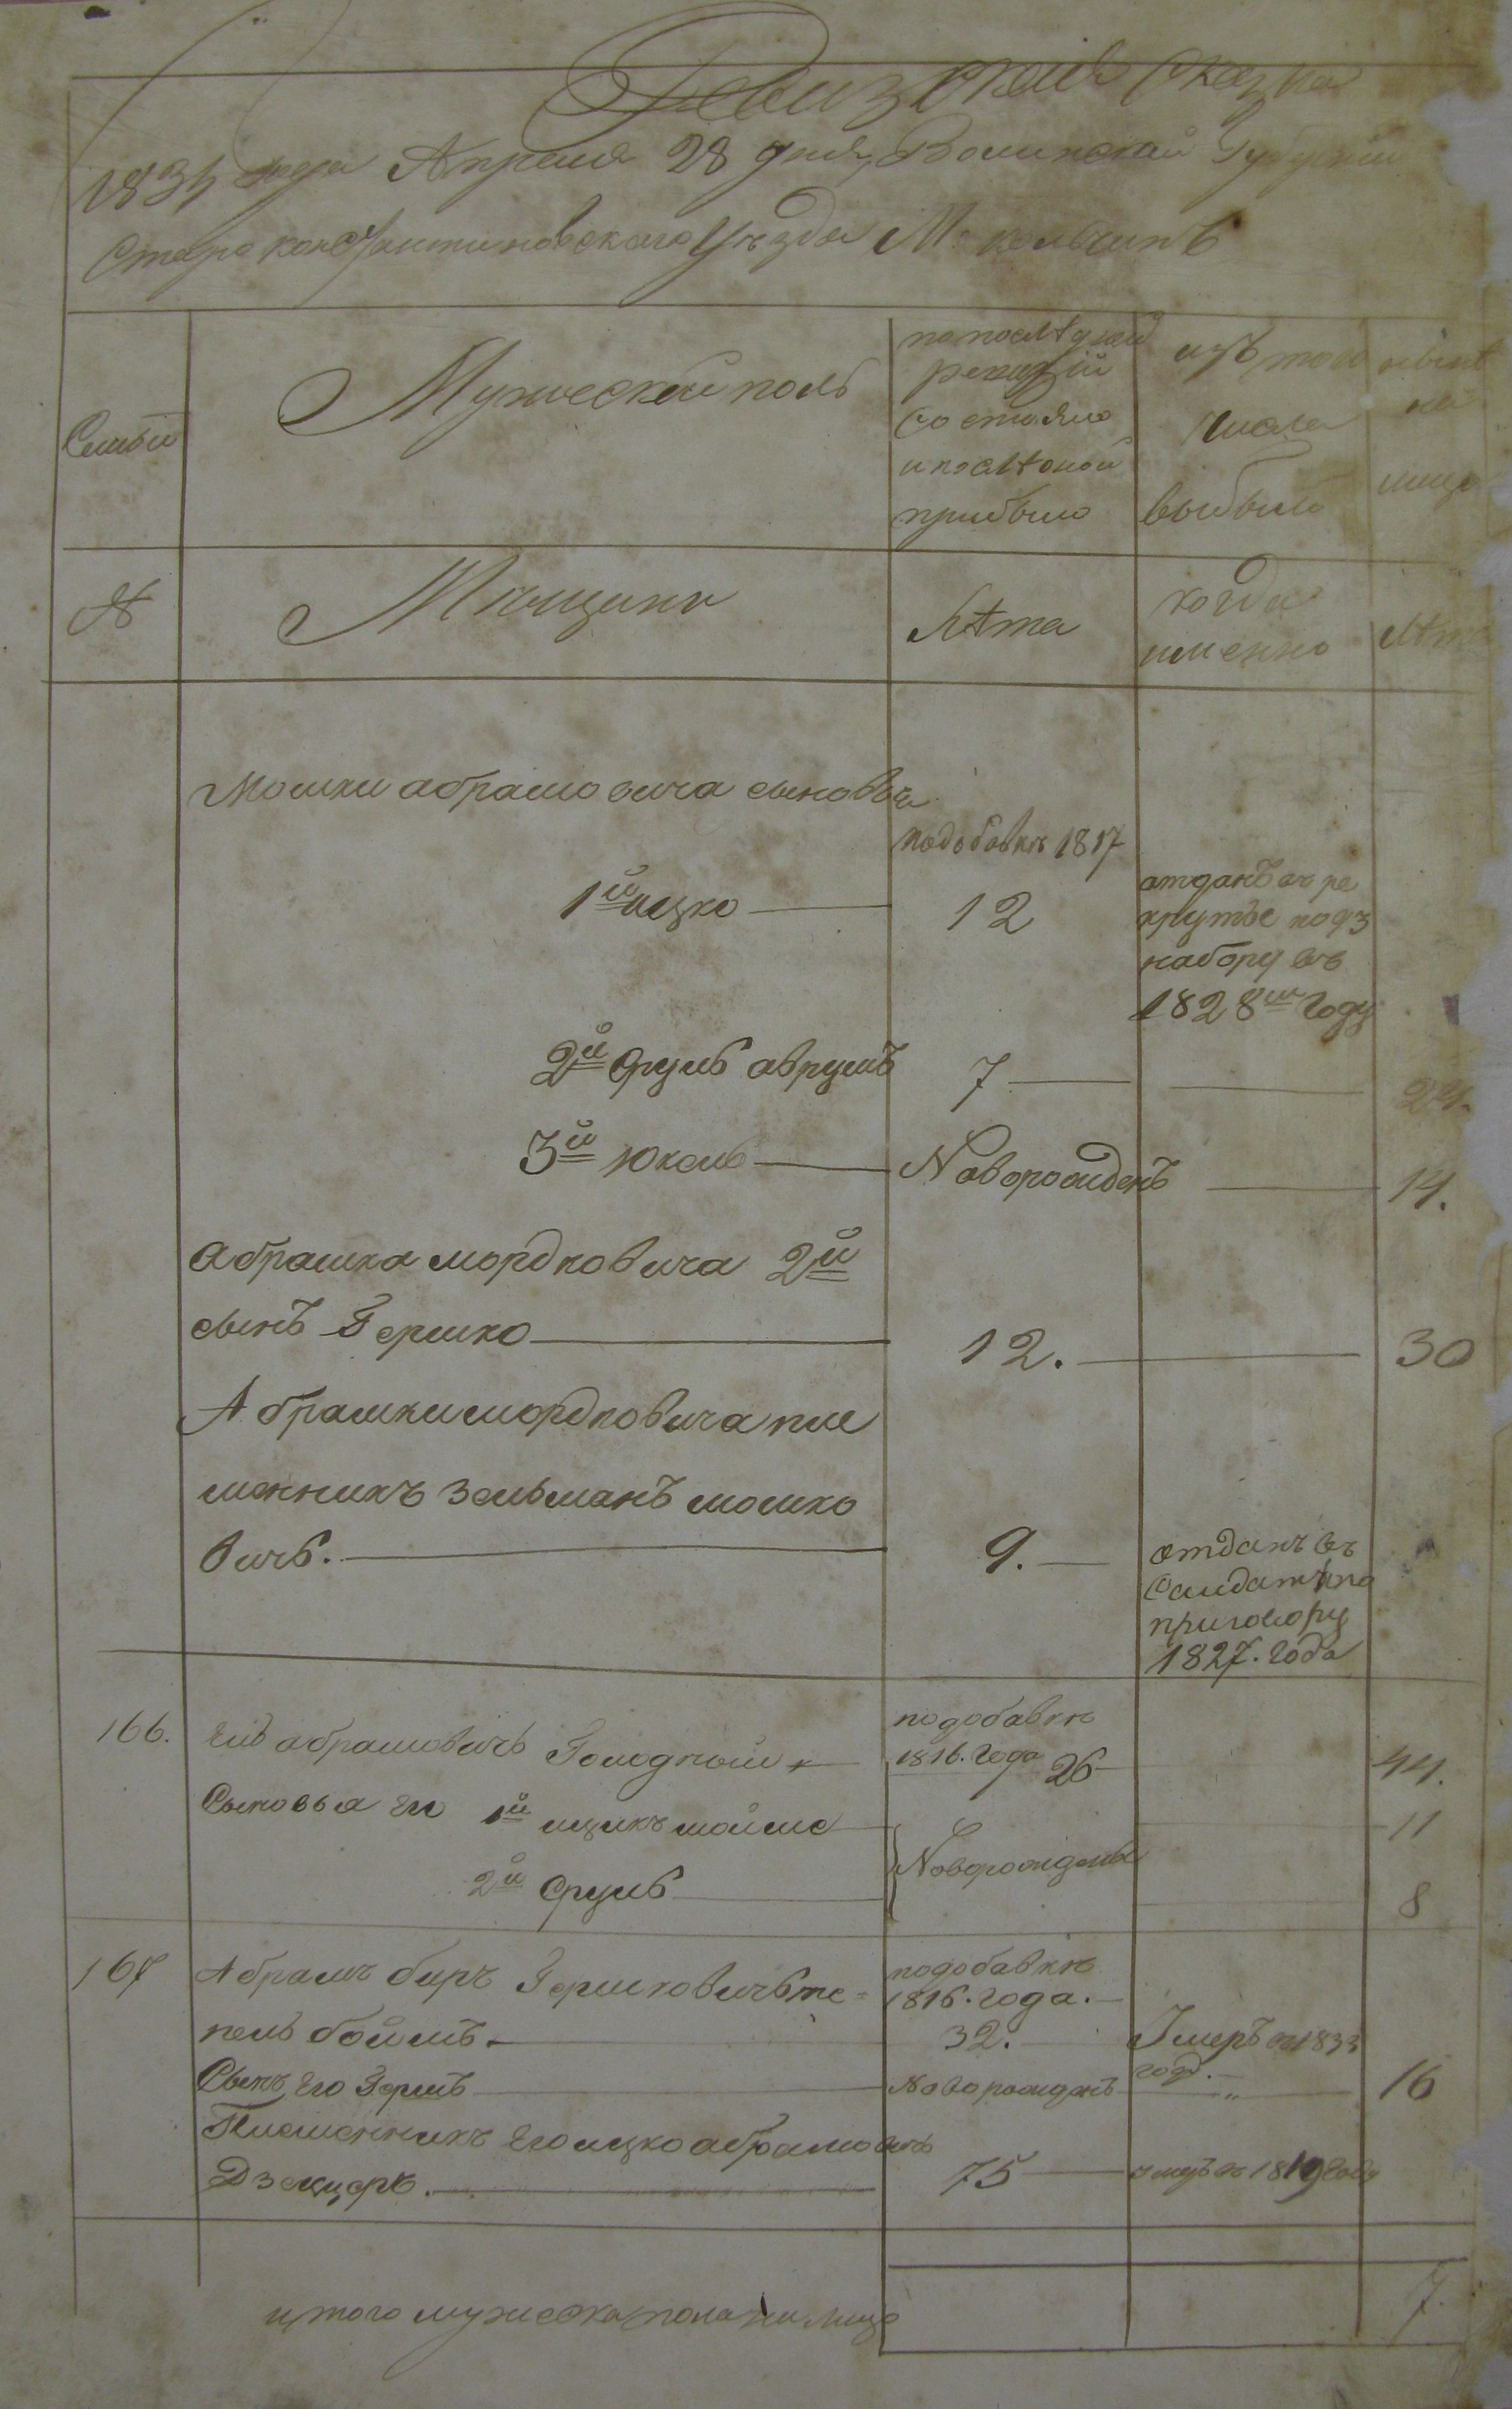 Ревизская сказка
1834 года Апреля 28 дня, Волинской Губерніи
Староконстантиновского Уѣзда М: Кольчинъ
Семьи
Мужеской полъ
по послѣдней
ревизіи
состояло
и послѣ оной
прибыло
изъ того
числа
выбыло
нынѣ
на
лицо
№
Мѣщани
Лѣта
когда
именно
Лѣта
Мошки абрамовича сыновья
подобавкѣ 1817
1й ицко 12
отданъ въ ре
круты подъ
наборъ въ
1828м Году
2й Сруль аврумъ 7 24.
3й Юкель Новорожденъ 14.
Абрашка мордковича 2й
сынъ Гершко 12. 30
Абрашки мордковича пле
менникъ Зельманъ мошко
вичь. 9.
отданъ въ
Салдаты по
приговору
1827. года
166. Ель абрамовичь Голодный
подобавкѣ
1816. года 26 44.
Сыновья его 1й ицикъ мойше 11
Новорождены
2й Сруль 8
167 Абрамъ беръ Гершковичь те=
пель боймъ
подобавкѣ
1816. года.
32. Умеръ въ 1833
год.
Сынъ его Гершъ Новорожденъ " 16
Племенникъ его ицко абрамовичь
Дзекцеръ. 75 умеръ въ 1819 году
итого мужеска пола на лицо 7.